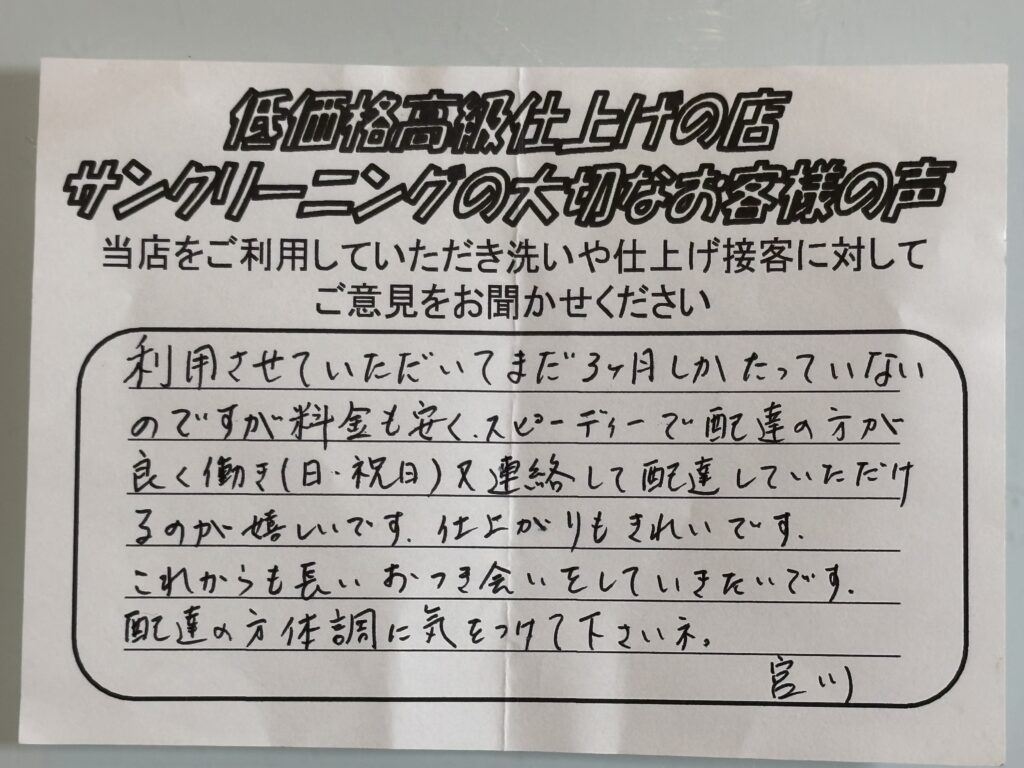 低価格高級仕上げの店
サンクリーニングの大切なお客様の声
当店をご利用していただき洗いや仕上げ接客に対して
ご意見をお聞かせください
利用させていただいてまだ3ヶ月しかたっていない
のですが料金も安く、スピーディーで配達の方が
良く働き(日・祝日)又連絡して配達していただけ
るのが嬉しいです。仕上がりもきれいです。
これからも長いおつき会いをしていきたいです。
配達の方体調に気をつけて下さいネ。
宮川